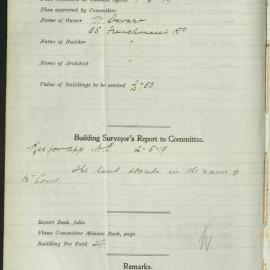 Plan approved by Committee
Name of Owner
55 Frenchmans Rd
Name of Builder "
Name of Architect "
Value of Buildings to be erected £ 50
Building Surveyor's Report to Committee.
2-5-19
The land stands in the name of
Report Book, folio
Plans Committee Minute Book, page
Building Fee Paid
Remarks.